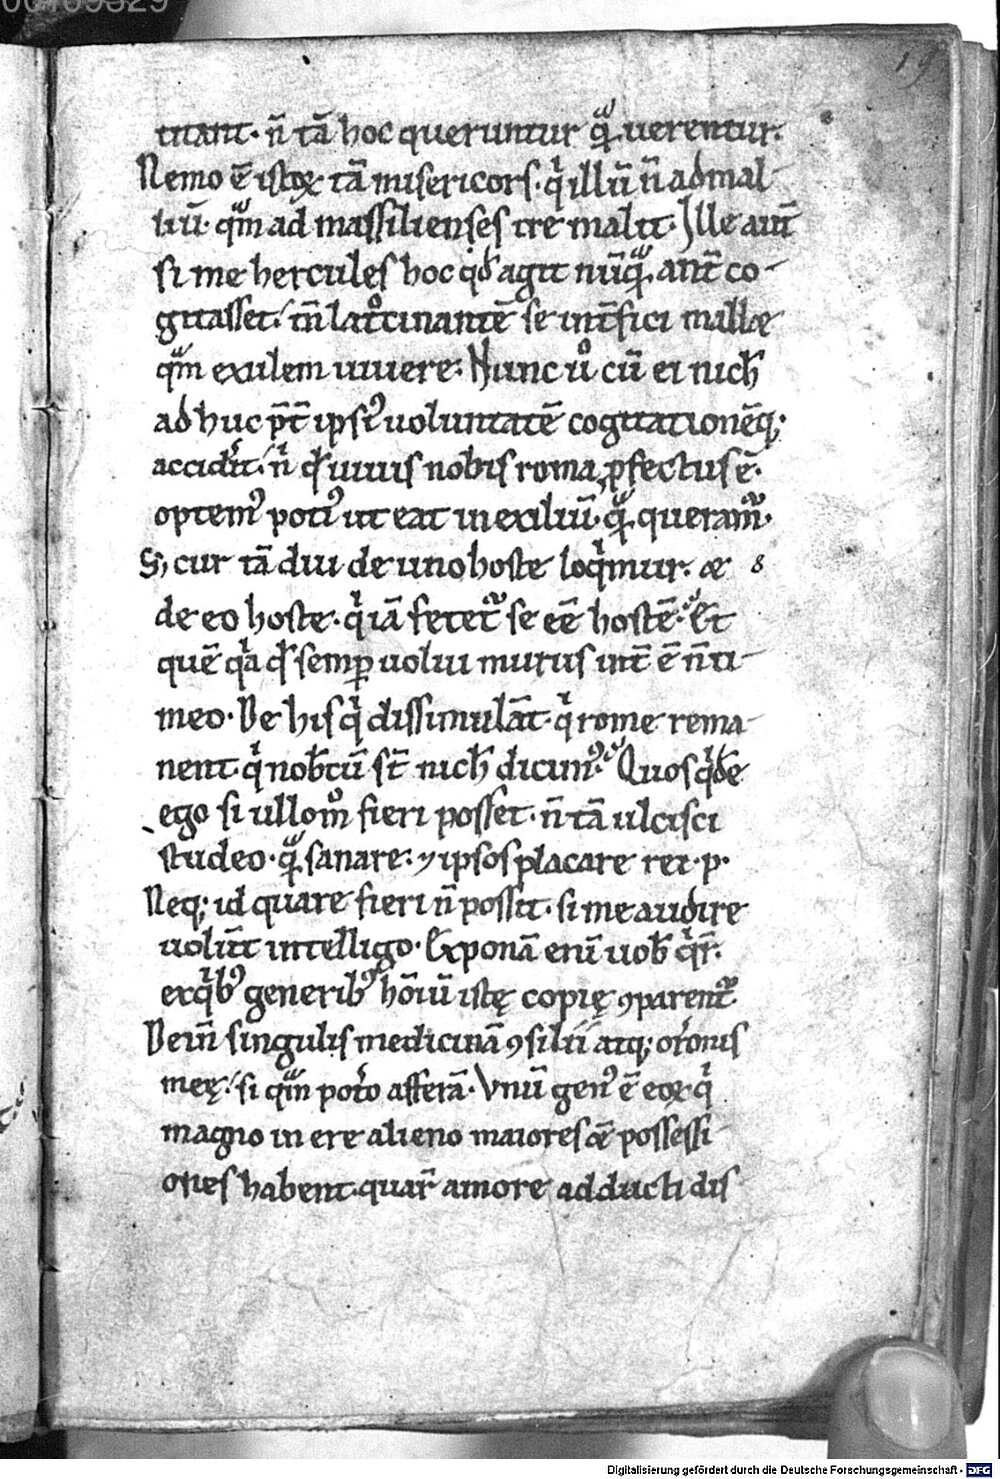 00109329
19
titant· n̄ tā hoc queruntur qͣ̄ uerentur.
Nemo ē istoꝝ tā misericors· qͥ illū n̄ ad mal-
liū· qͣm ad massilienses ire malit· Ille aut̄
si me hercules hoc qd̓ agit nūqͣ̄ ant̄ co-
gitasset· tn̄ latͦcinantē se int̄fici mallæ
qͣm exulem uiuere· Nunc uͦ cū ei nich̄
ad huc pt̄ ipsiꝰ uoluntatē cogitationēq;
accid̓it· nͥ qd̓ uiuis nobis roma ꝓfectus ē·
optemꝰ potiꝰ ut eat in exiliū· qͣ̄ queramᷣ·
S; cur tā diu de uno hoste loqͥmur· æ 8
de eo hoste· qͥ iā fetetᷣ se eē hostē· Et
quē qͥa qd̓ semꝑ uolui murus int̄ ē n̄ ti-
meo· De his qͥ dissimulāt· qͥ rome rema-
nent· qͥ nob̄cū st̄ nich̄ dicimꝰ· Quos qͥdē
ego si ullo mͦ fieri posset· n̄ tā ulcisci
studeo· qͣ̄ sanare· ⁊ ipsos placare rei· p·
Neq; id quare fieri n̄ possit· si me audire
uolūt intelligo· Exponā enī uob̄ qͥr̄·
ex qͥbꝰ generibꝰ hōīū istę copię ꝯparentᷣ
Dein̄ singulis medicinā ꝯsilii atq; or̄onis
meę· si qͣm potͦo afferā· Vnū genꝰ ē eoꝝ qͥ
magno in ere alieno maiores ǣ possessi-
ones habent· quar̄ amore adducti dis
Digitalisierung gefördert durch die Deutsche Forschungsgemeinschaft - DFG